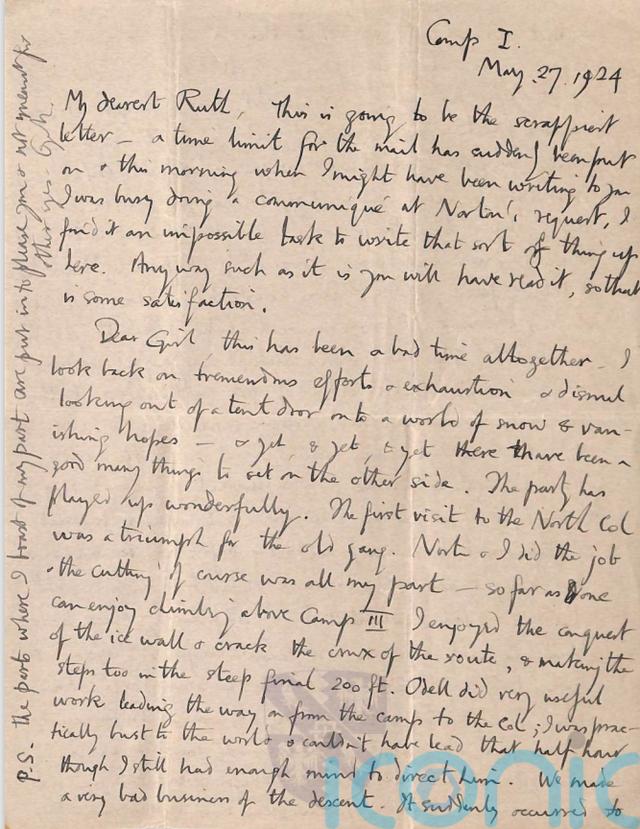 Camp I.
May. 27. 1924
My dearest Ruth, This is going to be the scrappiest
letter — a time limit for the mail has suddenly been put
on & this morning when I might have been writing to you
I was busy doing a communiqué at Norton's request, I
find it an impossible task to write that sort of thing up
here. Anyway such as it is you will have read it, so that
is some satisfaction.
Dear Girl, this has been a bad time altogether – I
look back on tremendous efforts & exhaustion & dismal
looking out of a tent door on to a world of snow & van-
ishing hopes — & yet, & yet, & yet there have been a
good many things to set on the other side. The party has
played up wonderfully. The first visit to the North Col
was a triumph for the old gang. Norton & I did the job
& the cutting of course was all my part — so far as one
can enjoy climbing above Camp III I enjoyed the conquest
of the ice wall & crack the crux of the route, & making the
steps too in the steep final 200 ft. Odell did very useful
work leading the way on from the camp to the Col; I was prac-
tically bust to the world & couldn't have lead that half hour
though I still had enough mind to direct him. We made
a very bad business of the descent. It suddenly occurred to
P.S. the parts where I boast of my part are put in to please you & not meant for
other eyes – G.M.
iconic